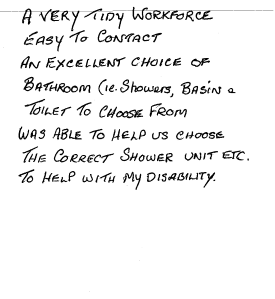 A VERY TIDY WORKFORCE
EASY TO CONTACT
AN EXCELLENT CHOICE OF
BATHROOM (ie. SHOWERS, BASIN &
TOILET TO CHOOSE FROM
WAS ABLE TO HELP US CHOOSE
THE CORRECT SHOWER UNIT ETC.
TO HELP WITH MY DISABILITY.